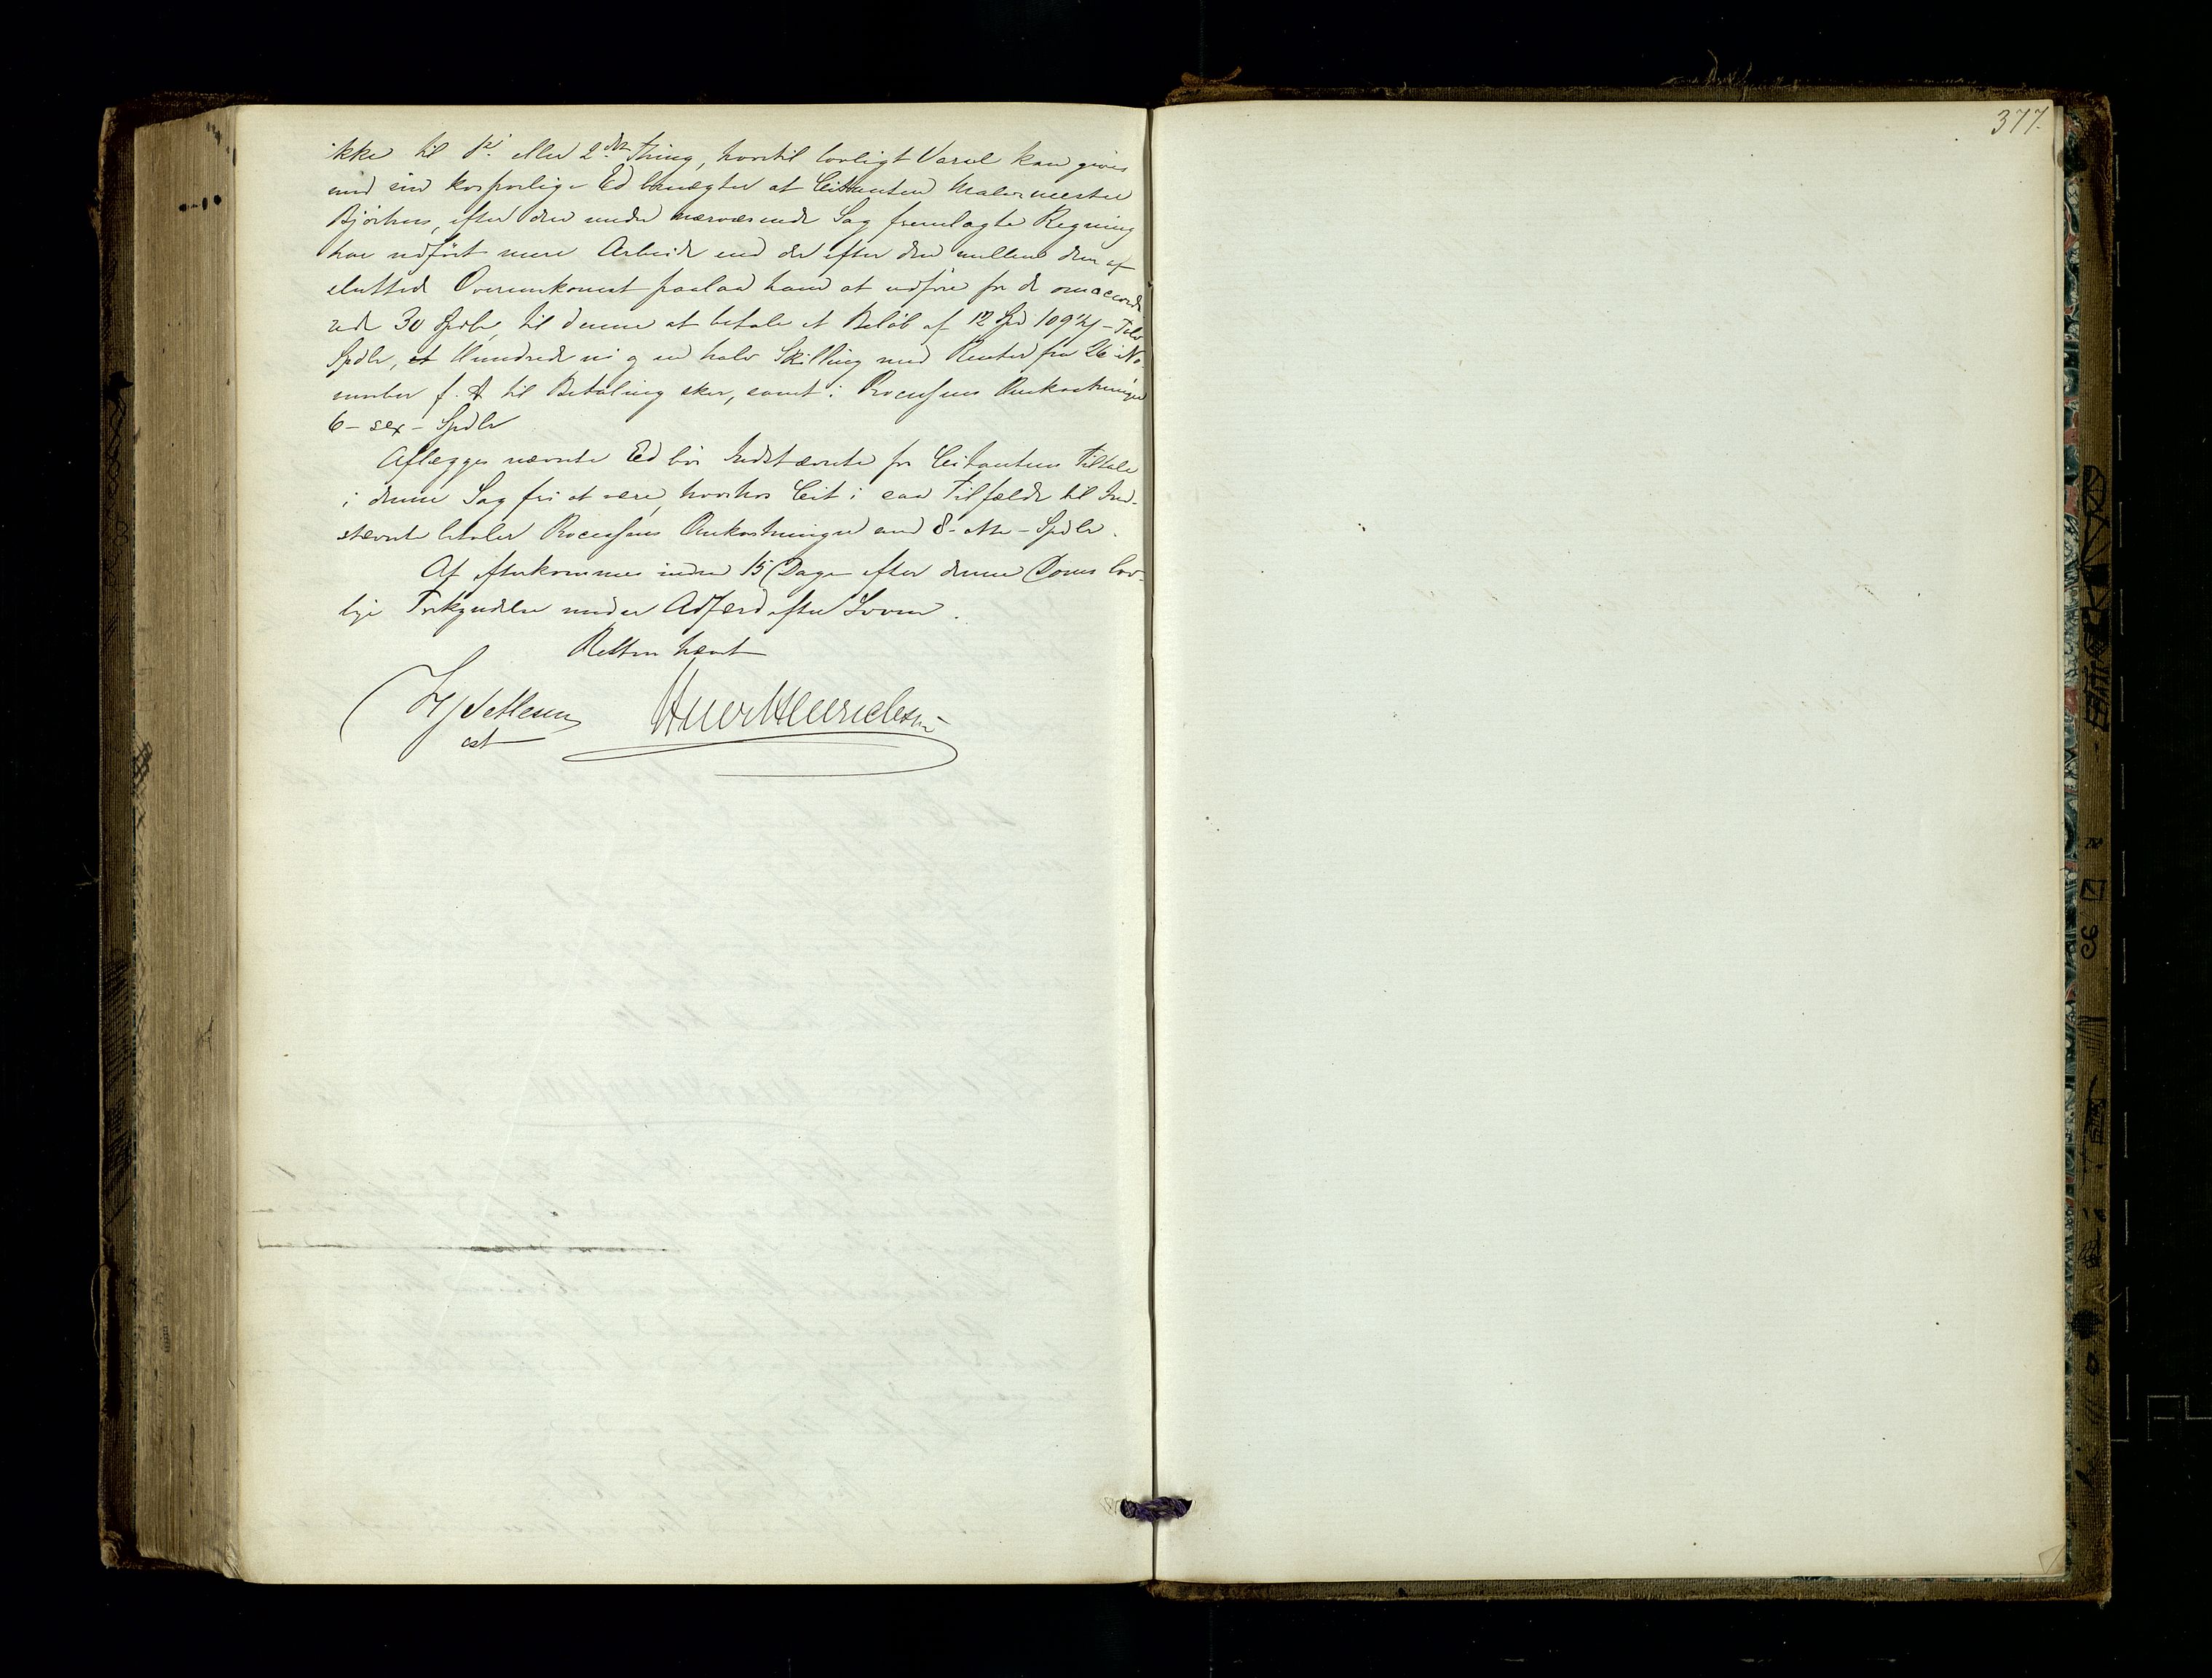 377.
ikke til 1ste eller 2det Thing, hvortil lovligt Varsel kan gives
med sin korporlige Ed benægter at Citanten Malermester
Bjørhus, efter den under nærværende Sag fremlagte Regning
har udført mere Arbeide end der efter den mellem dem af
sluttede Overenskomst paalaa ham at udføre for de omaccorde
rede 30 Spdlr, til denne at betale et Beløb af 12 Spd 109½ ſ - Tolv
Spdlr, et Hundrede ni og en halv Skilling med Renter fra 26 No-
vember f. A til Betaling sker, samt i Processens Omkostninger
6 - sex - Spdlr
Aflægges nævnte Ed bør Indstævnte for Citantens Tiltale
i denne Sag fri at være, hvorhos Cit i saa Tilfælde til Ind-
stævnte betaler Processens Omkostninger med 8 - otte - Spdlr.
At efterkommes inden 15 Dage efter denne Doms lov-
lige Forkyndelse under Adfærd efter Loven.
Retten hævet
cst